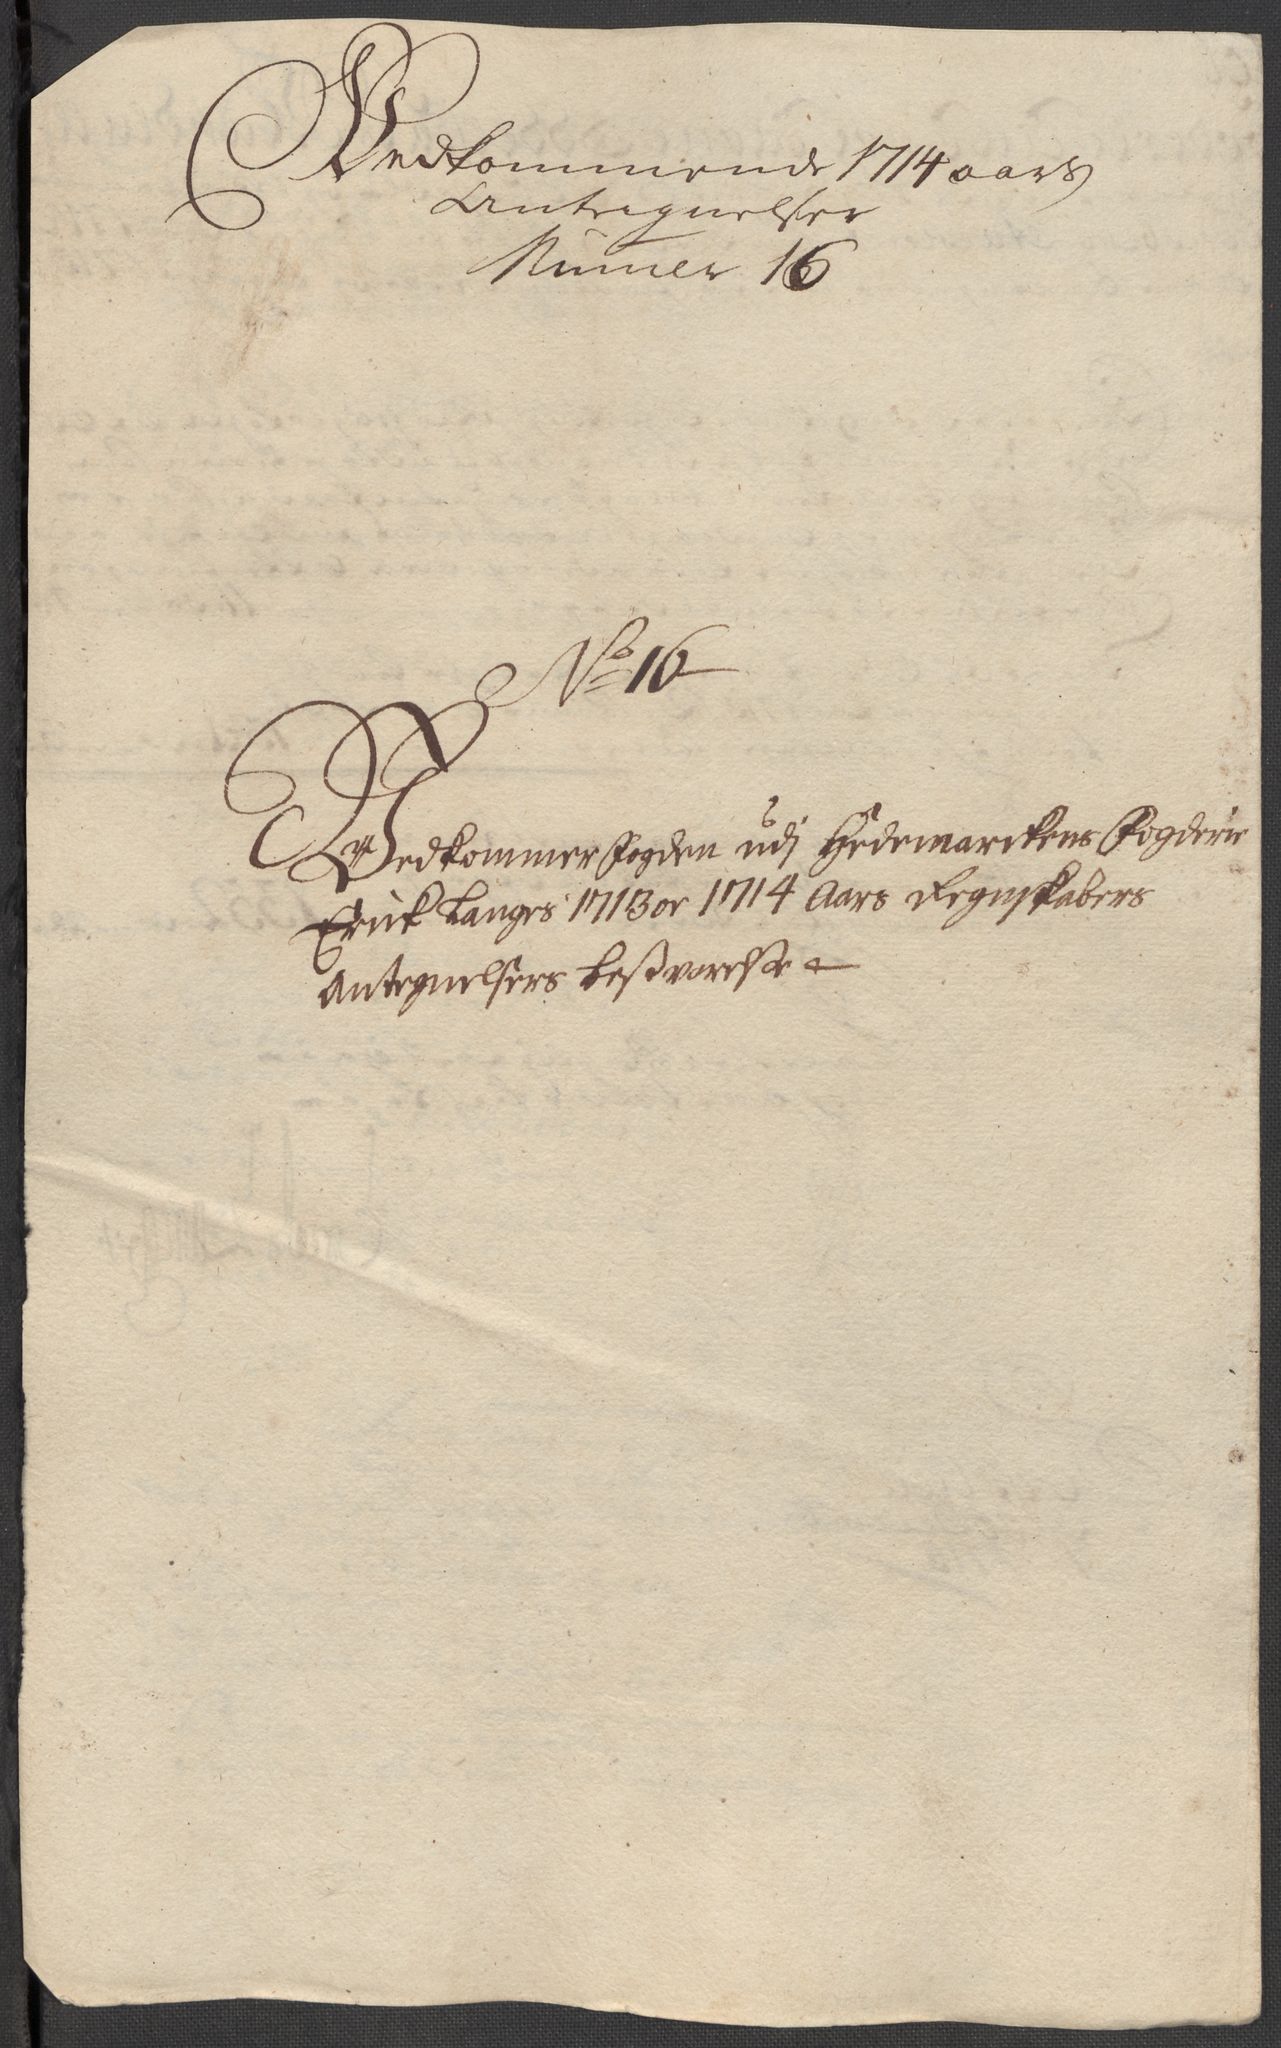 Vedkommende 1714 aars
Antegnelser
Numer 16
No 16
Vedkommer fogden udj Hedemarckens fogderie
Erick Langes 1713 or 1714 Aars Regnskabers
Antegnelsers besvarelse